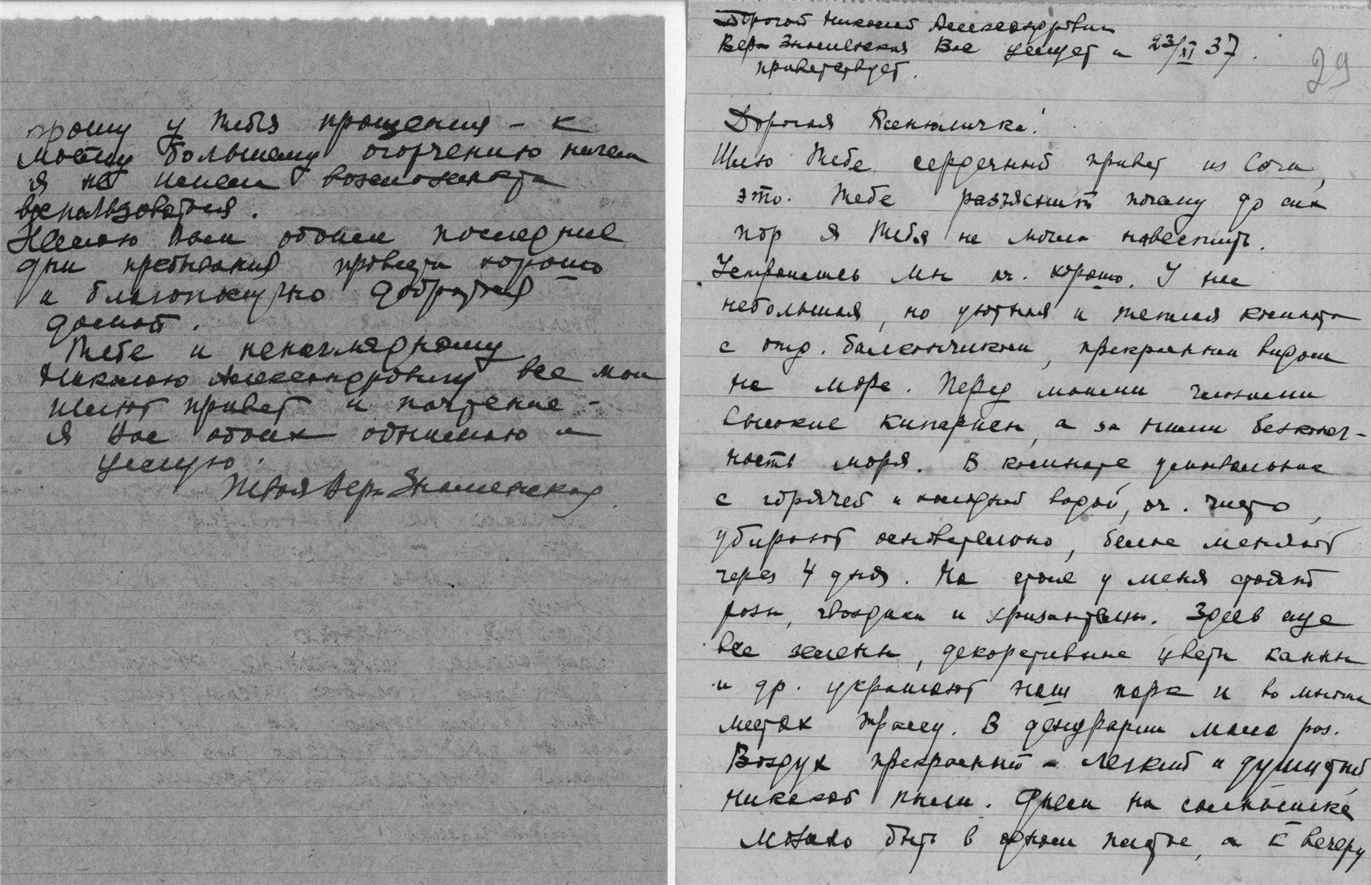 прошу у Тебя прощения – к
моему большому огорчению ничем
я не имела возможности
воспользоваться.
Желаю Вам обоим последние
дни пребывания провести хорошо
и благополучно добраться
домой.
Тебе и ненаглядному
Николаю Александровичу все мои
шлют привет и почтение –
я Вас обоих обнимаю и
целую.
Твоя Вера Знаменская
Дорогой Николай Александрович
Вера Знаменская Вас целует и 23/XI 37.
приветствует.
29
Дорогая Ксенюличка!
Шлю Тебе сердечный привет из Сочи,
это Тебе разъяснит почему до сих
пор я Тебя не могла навестить.
Устроились мы оч. хорошо. У нас
небольшая, но уютная и теплая комната
с отд. балкончиком, прекрасным видом
на море. Перед моими глазами
высокие кипарисы, а за ними бесконеч-
ность моря. В комнате умывальник
с горячей и холодной водой, оч. чисто,
убирают основательно, белье меняют
через 4 дня. На столе у меня стоят
розы, гвоздики и хризантемы. Здесь еще
все зелень, декоративные цветы канны
и др. украшают наш парк и во многих
местах трассу. В дендрарии масса роз.
Воздух прекрасный – легкий и душистый
никакой пыли. Днем на солнышке
можно быть в одном платье, а к вечеру